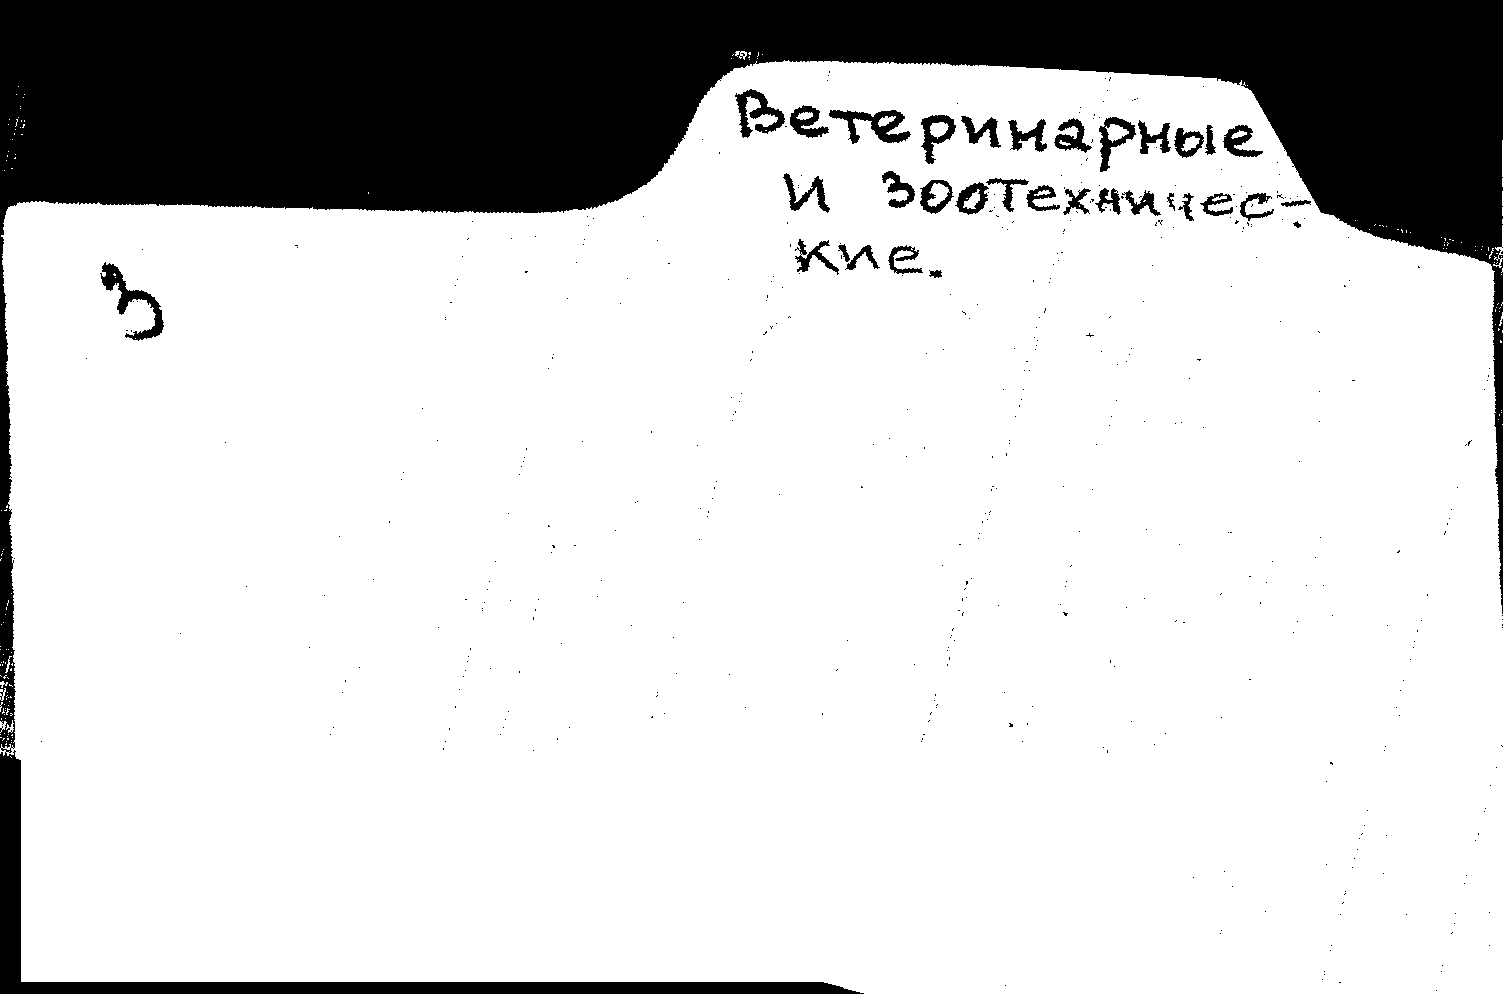 Ветеринарные
и зоотехничес-
кие.
3